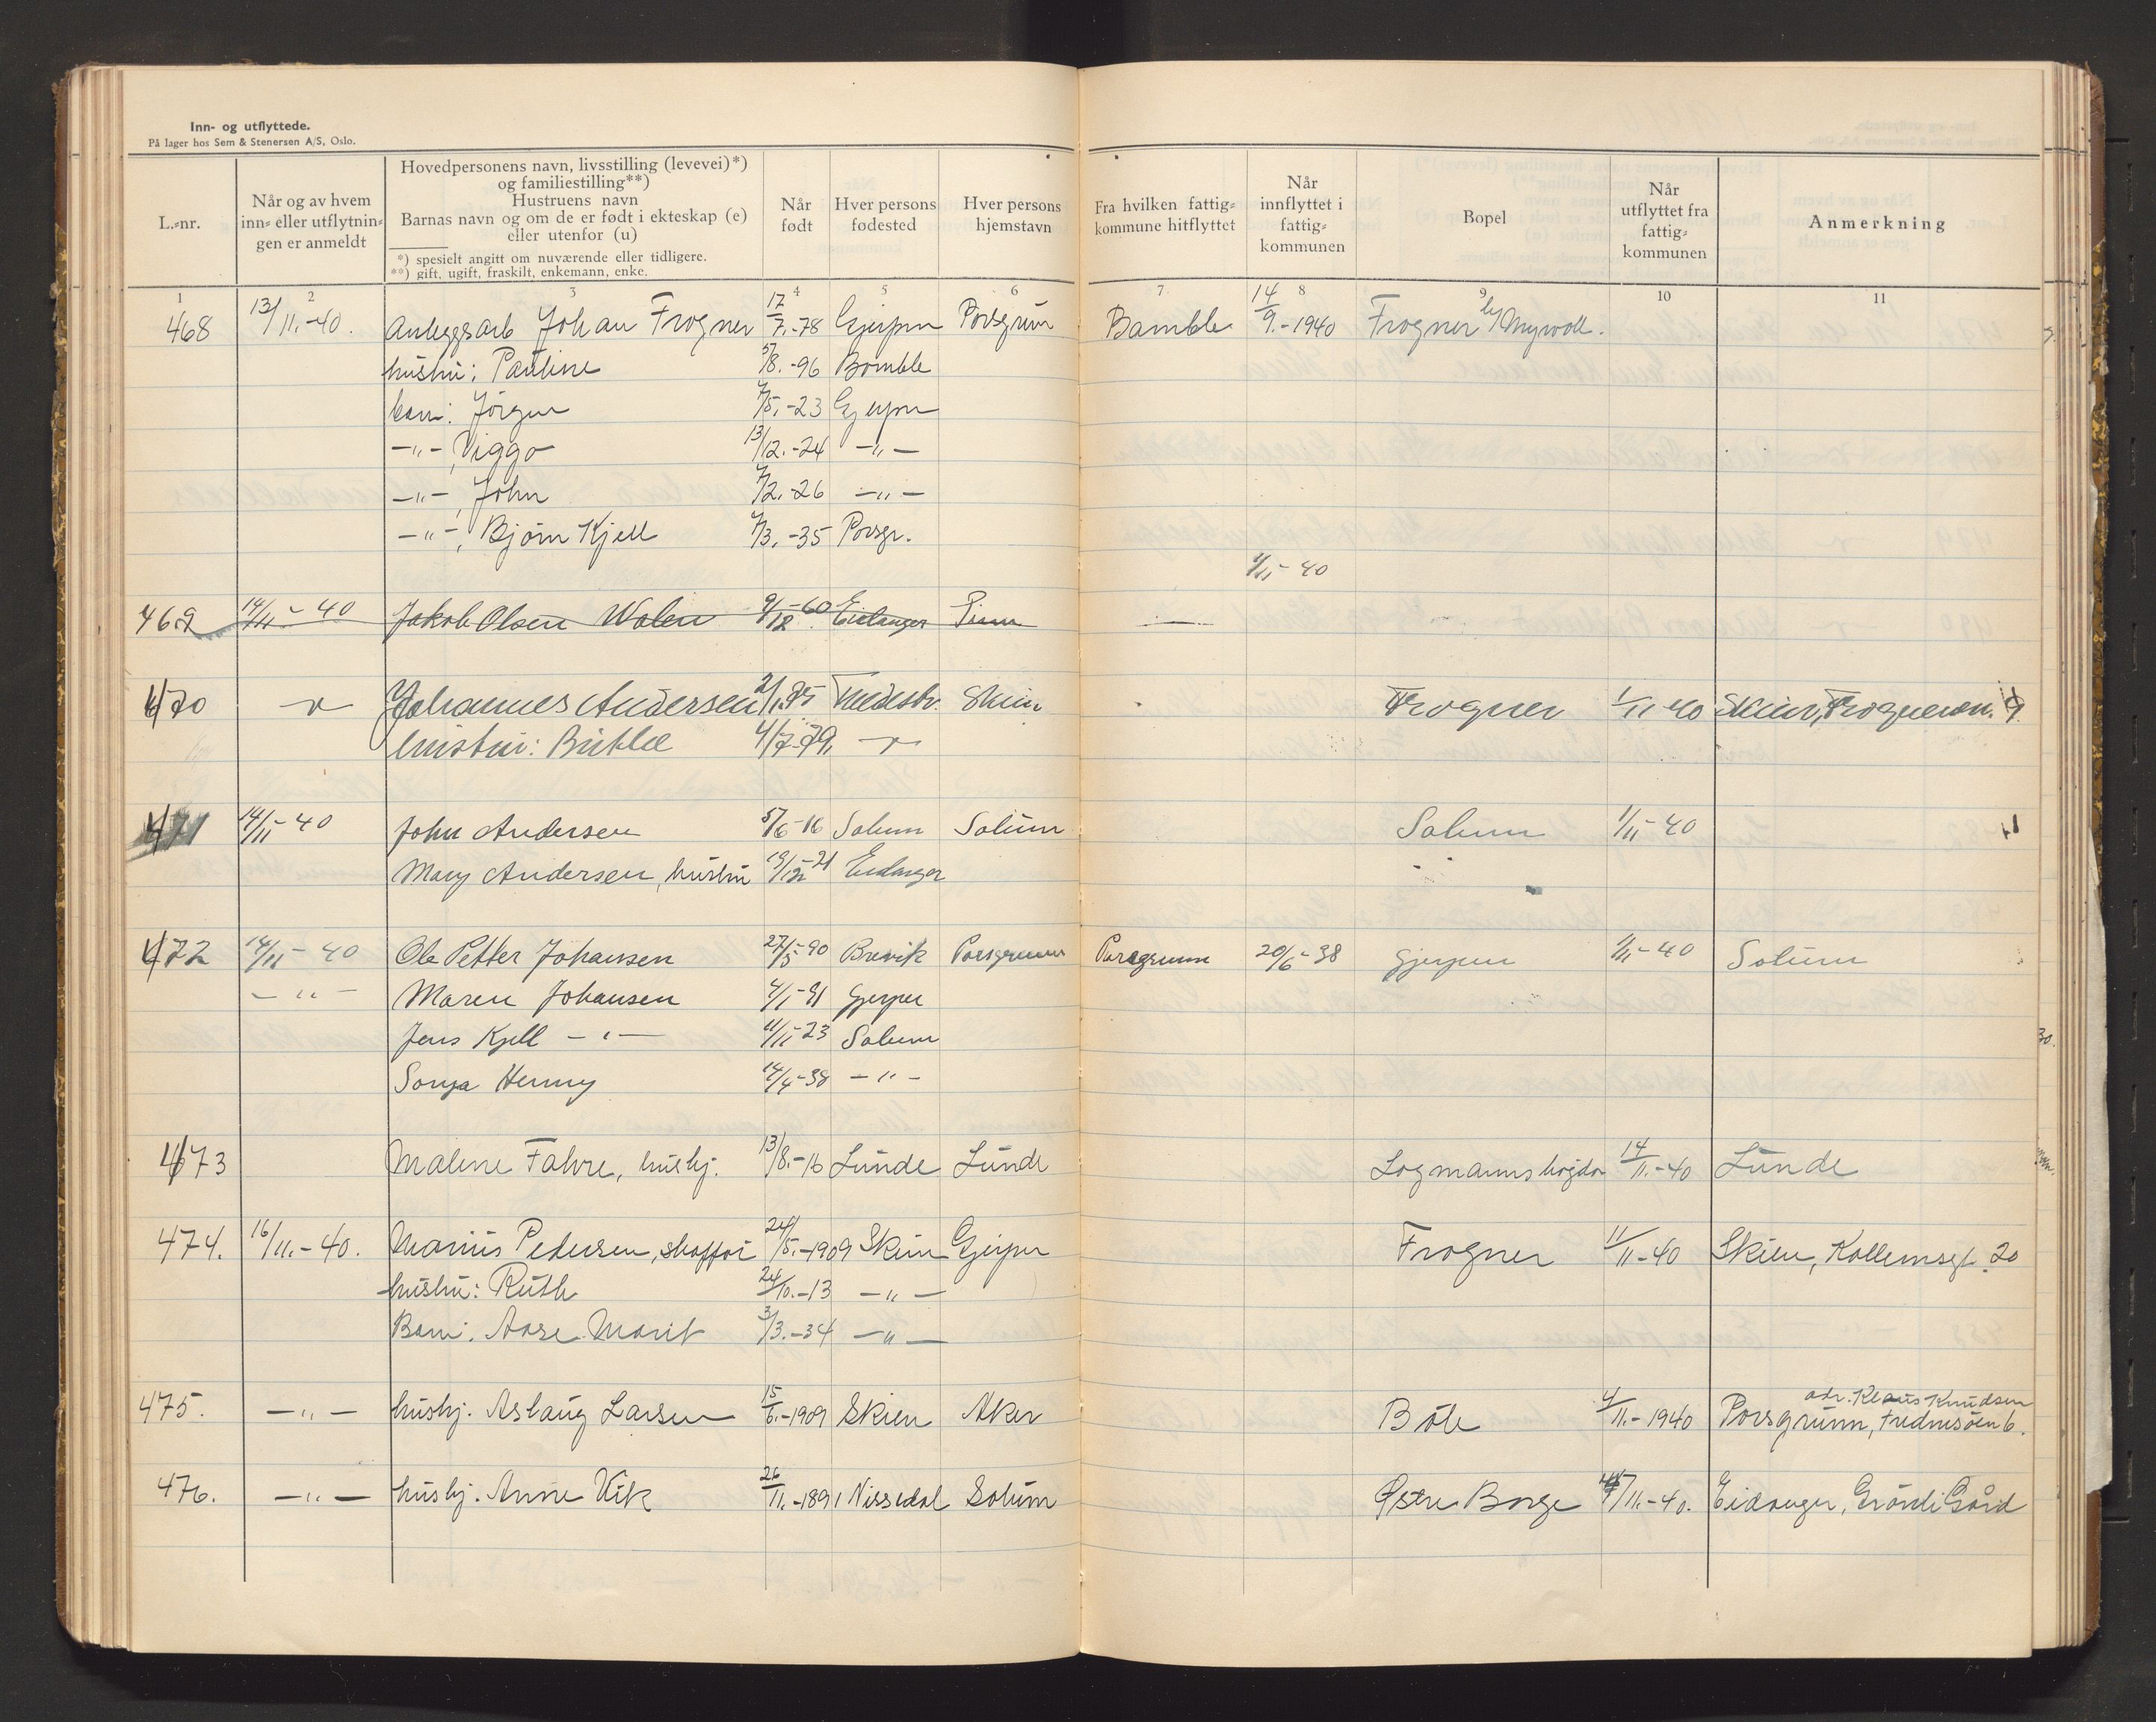 Inn- og utflyttede.
På lager hos Sem & Stenersen A/S, Oslo.
L.-nr.
Når og av hvem inn- eller utflytningen er anmeldt
Hovedpersonens navn, livsstilling (levevei)*)
og familiestilling**)
Hustruens navn
Barnas navn og om de er født i ekteskap (e)
eller utenfor (u)
*) spesielt angitt om nuværende eller tidligere.
**) gift, ugift, fraskilt, enkemann, enke.
Når født
Hver persons fødested
Hver persons hjemstavn
Fra hvilken fattigkommune hitflyttet
Når innflyttet i fattigkommunen
Bopel
Når utflyttet fra fattigkommunen
Anmerkning
1 2 3 4 5 6 7 8 9 10 11
468 13/11.-40. Anleggsarb Johan Frogner 17/7.-78 Gjerpen Porsgrunn Bamble 14/9.-1940 Frogner Myrvoll.
hustru: Pauline 5/8.-96 Bamble
barn: Jörgen /5.-23 Gjerpen
-"- , Viggo 13/12.-24 -"-
-"- , John /2.-26 -"-
-"- , Bjørn Kjell /3.-35 Porsgr.
1/11-40
469 14/11-40 Jakob Olsen Walen 9/12-60 Eidanger —
470 Johannes Andersen Tvedestr. Skien Frogner 1/11 40 Skien, Frogner
hustru: 4/7-79
471 14/11-40 John Andersen 5/6-16 Solum Solum Solum 1/11-40
Mary Andersen, hustru 19/12-21 Eidanger
472 14/11-40 Ole Petter Johansen 27/5-90 Brevik Porsgrunn Porsgrunn 20/6-38 Gjerpen 1/11-40 Solum
-"- Maren Johansen 4/1-91 Gjerpen
Jens Kjell -"- 11/11-23 Solum
Sonja Henny 14/4-38 -"-
473 Malene Fahre, hushj. 13/8.-16 Lunde Lunde Logmannshögda 14/11.-40 Lunde
474. 16/11.-40. Marius Pedersen, sjaffør 24/5.-1909 Skien Gjerpen Frogner 11/11-40 Skien, 20
hustru: Ruth 24/10.-13 -"-
Barn: Aase Marit 3/3.-34 -"-
475. -"- hushj. Aslaug Larsen 15/6.-1909 Skien Aker Böle 4/11.-1940 Porsgrunn, 6.
adr. Klaus Knudsen
476. -"- hushj. Anne Vik 26/11.-1891 Nissedal Solum Østre Borge /11.-40. Eidanger, Gård